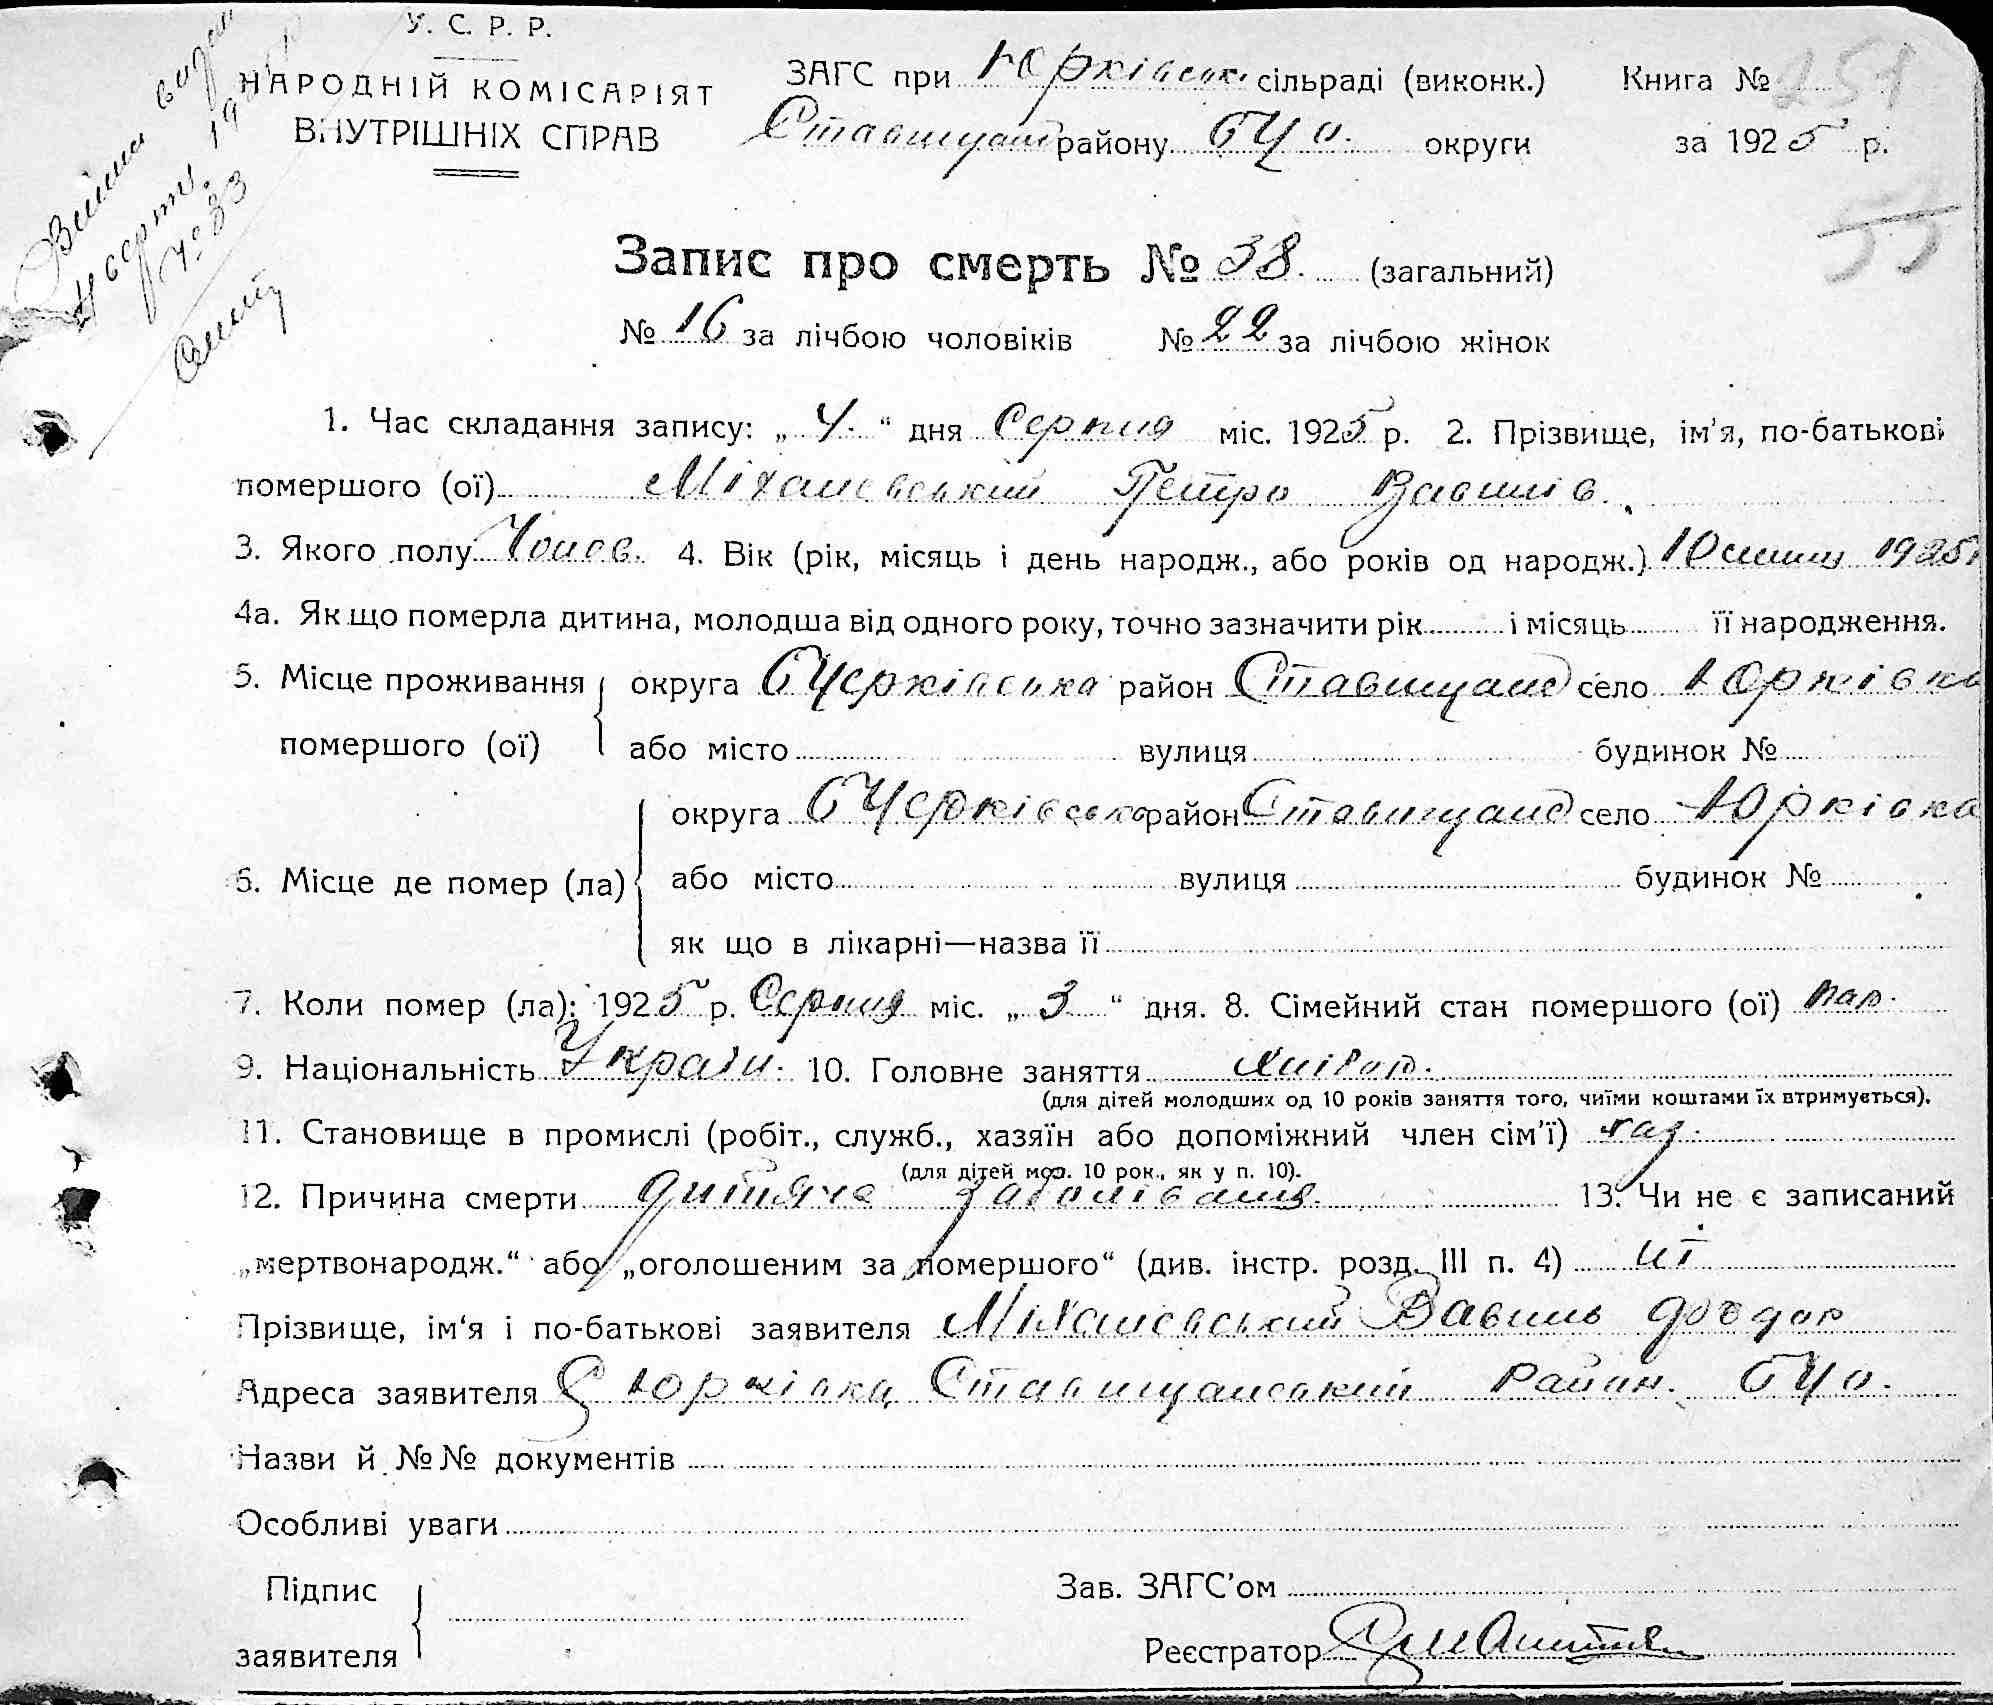 У. С. Р. Р.
НАРОДНІЙ КОМІСАРІЯТ
ВНУТРІШНІХ СПРАВ
ЗАГС при Юрківськ. сільраді (виконк.) Книга №
Ставищан району БЦо. округи за 1925 р.
251
№ 83
Запис про смерть № 38. (загальний)
№ 16 за лічбою чоловіків № 22 за лічбою жінок
1. Час складання запису: „ 4. “ дня Серпня міс. 1925 р. 2. Прізвище, ім’я, по-батькові
помершого (ої) Міхалевський Петро Вавилів.
3. Якого полу Чолов. 4. Вік (рік, місяць і день народж., або років од народж.) 10 липц 1925
4а. Як що померла дитина, молодша від одного року, точно зазначити рік і місяць її народження.
5. Місце проживання помершого (ої) округа БЦерківська район Ставищанс село Юрківка
або місто вулиця будинок №
6. Місце де помер (ла) округа БЦерківська район Ставищанс село Юрківка
або місто вулиця будинок №
як що в лікарні—назва її
7. Коли помер (ла): 1925 р. Серпня міс. „ 3 “ дня. 8. Сімейний стан помершого (ої)
9. Національність Україн. 10. Головне заняття хлібор.
(для дітей молодших од 10 років заняття того, чиїми коштами їх втримується).
11. Становище в промислі (робіт., служб., хазяїн або допоміжний член сім’ї) хаз.
(для дітей мол. 10 рок., як у п. 10).
12. Причина смерти дитяче заболівання. 13. Чи не є записаний
„мертвонародж.“ або „оголошеним за помершого“ (див. інстр. розд. III п. 4) ні
Прізвище, ім‘я і по-батькові заявителя Міхалевський Вавиль Федор
Адреса заявителя С Юрківка Ставищанський район. БЦо.
Назви й №№ документів
Особливі уваги
Підпис
заявителя
Зав. ЗАГС’ом
Реєстратор